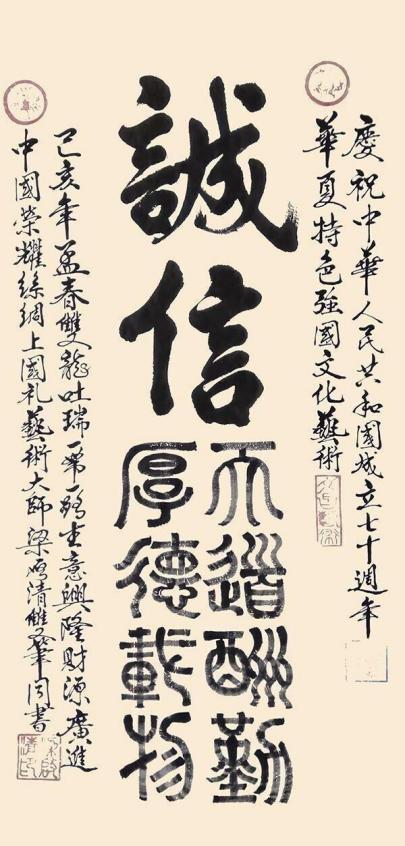 慶祝中華人民共和國成立七十週年
華夏特色強國文化藝術
誠信
天道酬勤
厚德載物
己亥年孟春雙龍吐瑞一带一路生意興隆財源廣進
中國榮耀絲綢上國礼藝術大師梁啟清雙筆同書